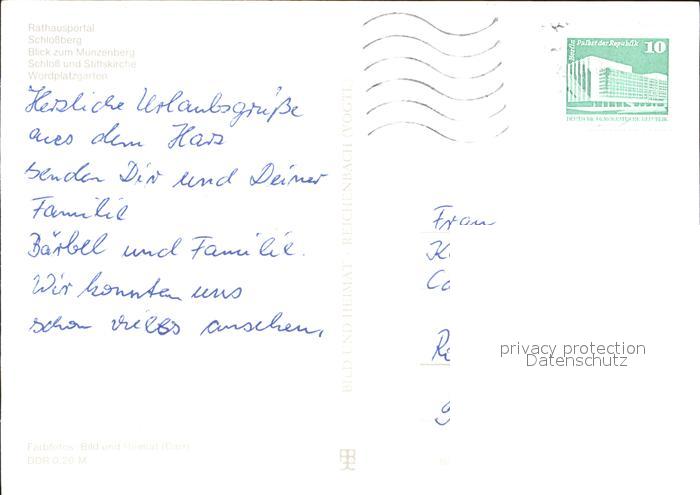 Rathausportal
Schloßberg
Blick zum Münzenberg
Schloß und Stiftskirche
Wordplatzgarten
Herzliche Urlaubsgrüße
aus dem Harz
senden Dir und Deiner
Familie
Bärbel und Familie.
Wir konnten uns
schon vieles ansehen.
Farbfotos: Bild und Heimat (Darr)
DDR 0,20 M
BILD UND HEIMAT · REICHENBACH (VOGTL
Berlin Palast der Republik 10
DEUTSCHE DEMOKRATISCHE REPUBLIK
Frau
K
Ca
Ri
privacy protection
Datenschutz